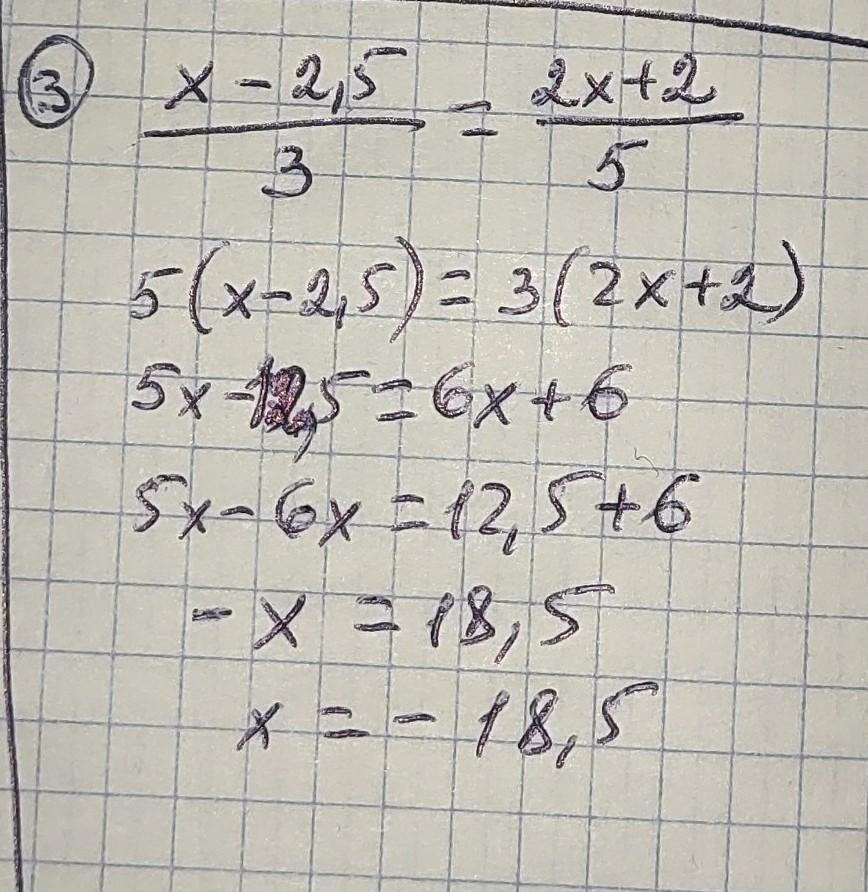 ③ x - 2,5 / 3 = 2x+2 / 5
5(x-2,5) = 3(2x+2)
5x-12,5 = 6x+6
5x-6x = 12,5+6
-x = 18,5
x = - 18,5